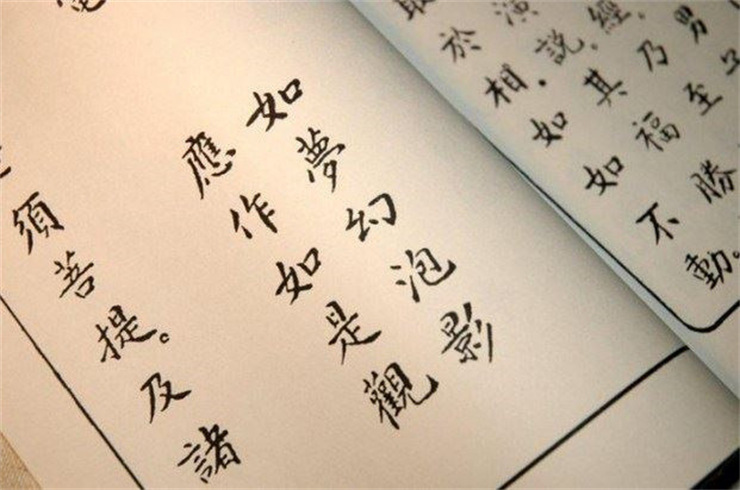 男
經。乃至
演說。其福勝
取於相。如如不動。
如夢幻泡影
應作如是觀
須菩提。及諸